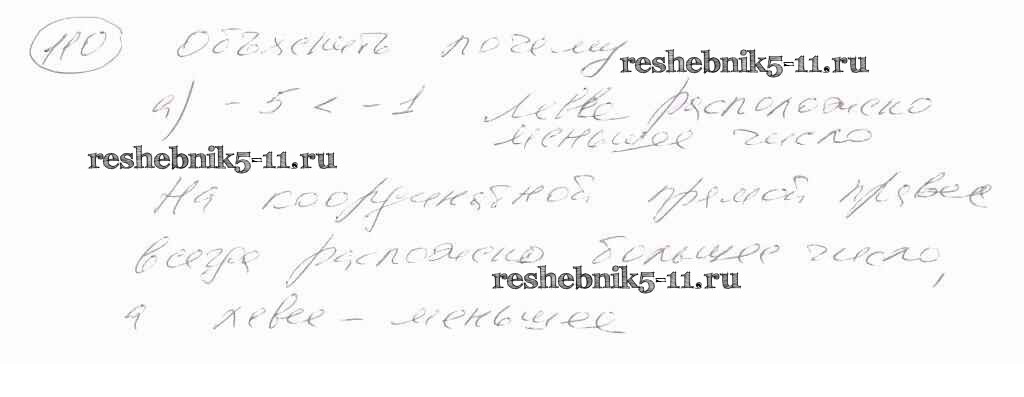 110 Объяснить почему
reshebnik5-11.ru
а) -5 < -1 левее расположено
меньшее число
reshebnik5-11.ru
На координатной прямой правее
всегда расположено большее число,
reshebnik5-11.ru
а левее - меньшее